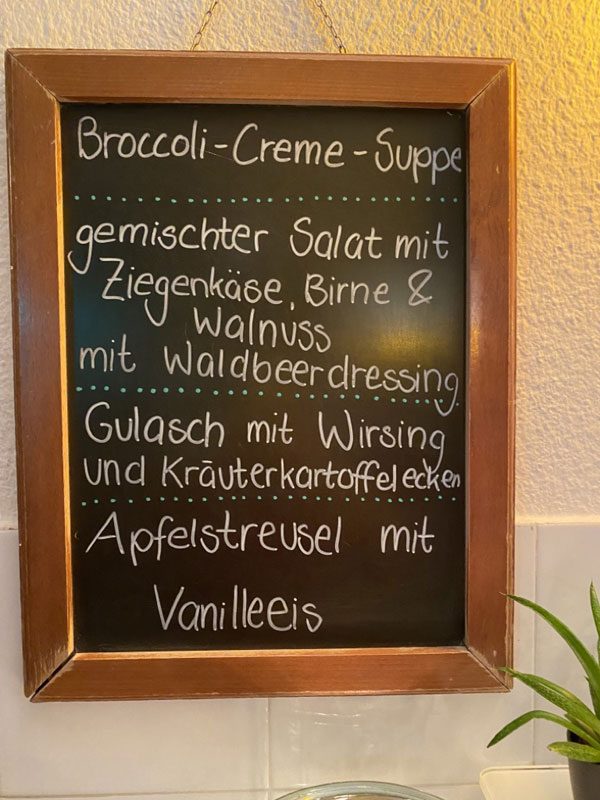 Broccoli-Creme-Suppe
gemischter Salat mit
Ziegenkäse, Birne &
Walnuss
mit Waldbeerdressing
Gulasch mit Wirsing
und Kräuterkartoffelecken
Apfelstreusel mit
Vanilleeis